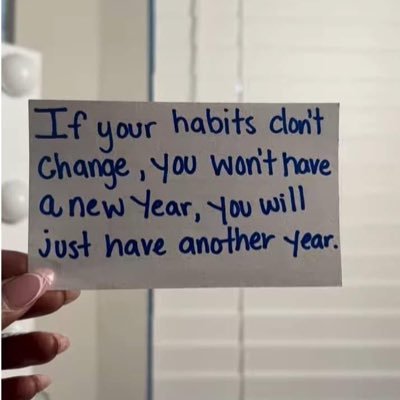 If your habits don't
Change, you won't have
a new Year, You will
just have another year.